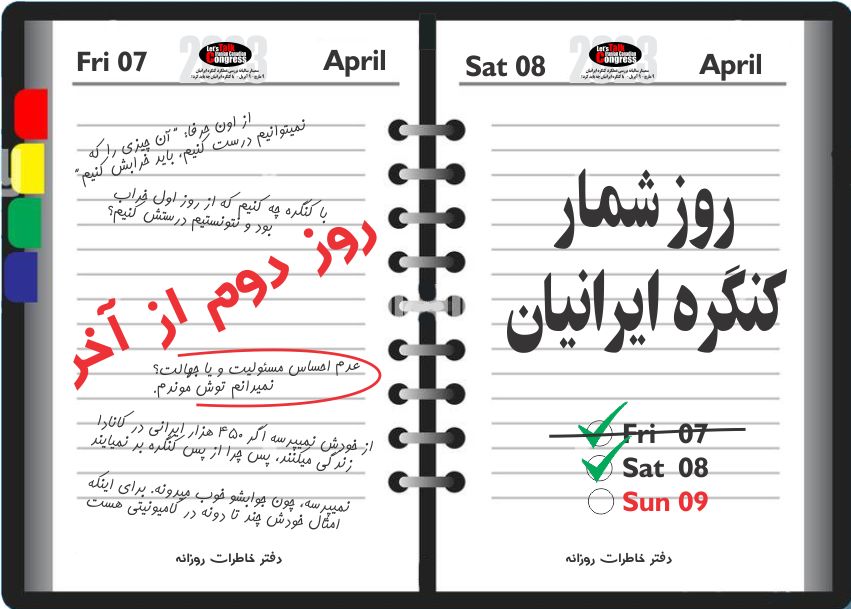 Fri 07
2023
Let's Talk
Iranian Canadian
Congress
April
از اون حرفا: "آن چیزی را که
نمیتوانیم درست کنیم، باید خرابش کنیم"
با کنگره چه کنیم که از روز اول خراب
بود و نتونستیم درستش کنیم؟
روز دوم از آخر
عدم احساس مسئولیت و یا جهالت؟
نمیدانم توش موندم.
از خودش نمیپرسه اگر ۴۵۰ هزار ایرانی در کانادا
زندگی میکنند، پس چرا از پس کنگره بر نمیایند
نمیپرسه، چون جوابشو خوب میدونه. برای اینکه
امثال خودش چند تا دونه در کامیونیتی هست
دفتر خاطرات روزانه
Sat 08
2023
Let's Talk
Iranian Canadian
Congress
April
روز شمار
کنگره ایرانیان
Fri 07
Sat 08
Sun 09
دفتر خاطرات روزانه